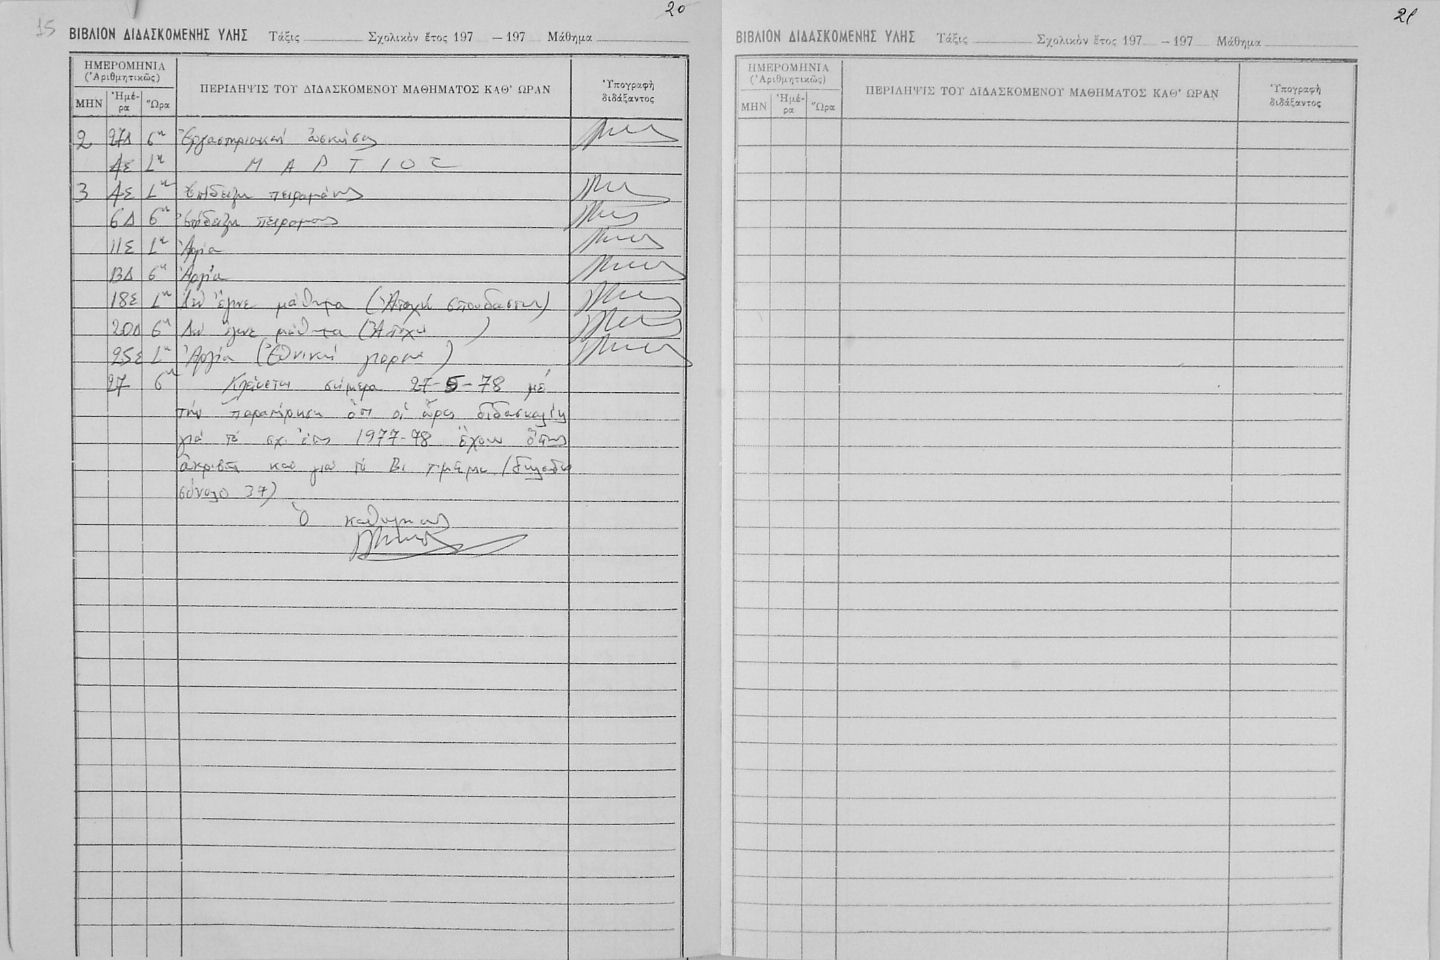 15
20
ΒΙΒΛΙΟΝ ΔΙΔΑΣΚΟΜΕΝΗΣ ΥΛΗΣ Τάξις Σχολικὸν ἔτος 197 – 197 Μάθημα
ΗΜΕΡΟΜΗΝΙΑ
(Ἀριθμητικῶς)
ΜΗΝ Ἡμέ-ρα Ὥρα
ΠΕΡΙΛΗΨΙΣ ΤΟΥ ΔΙΔΑΣΚΟΜΕΝΟΥ ΜΑΘΗΜΑΤΟΣ ΚΑΘ' ΩΡΑΝ
Ὑπογραφὴ
διδάξαντος
2 27Δ Ἐργαστηριακή ἄσκηση
4Σ ΜΑΡΤΙΟΣ
3 4Σ Ἐπίδειξη πειράματος
6Δ Ἐπίδειξη πειράματος
11Σ Ἀργία
13Δ Ἀργία
18Σ Δέν ἔγινε μάθημα (Ἀποχή σπουδαστῶν)
20Δ Δέν ἔγινε μάθημα (Ἀποχή )
25Σ Ἀργία (Ἐθνική γιορτή)
27 Κλείνεται σήμερα 27-5-78 μέ
τήν παρατήρηση ὅτι οἱ ὧρες διδασκαλίας
γιά τό σχ. ἔτος 1977-78 ἔχουν ὅπως
ἀκριβῶς καί γιά τό Βι τμῆμα (δηλαδή
σύνολο 37)
Ὁ καθηγητής
21
ΒΙΒΛΙΟΝ ΔΙΔΑΣΚΟΜΕΝΗΣ ΥΛΗΣ Τάξις Σχολικὸν ἔτος 197 – 197 Μάθημα
ΗΜΕΡΟΜΗΝΙΑ
(Ἀριθμητικῶς)
ΜΗΝ Ἡμέ-ρα Ὥρα
ΠΕΡΙΛΗΨΙΣ ΤΟΥ ΔΙΔΑΣΚΟΜΕΝΟΥ ΜΑΘΗΜΑΤΟΣ ΚΑΘ' ΩΡΑΝ
Ὑπογραφὴ
διδάξαντος